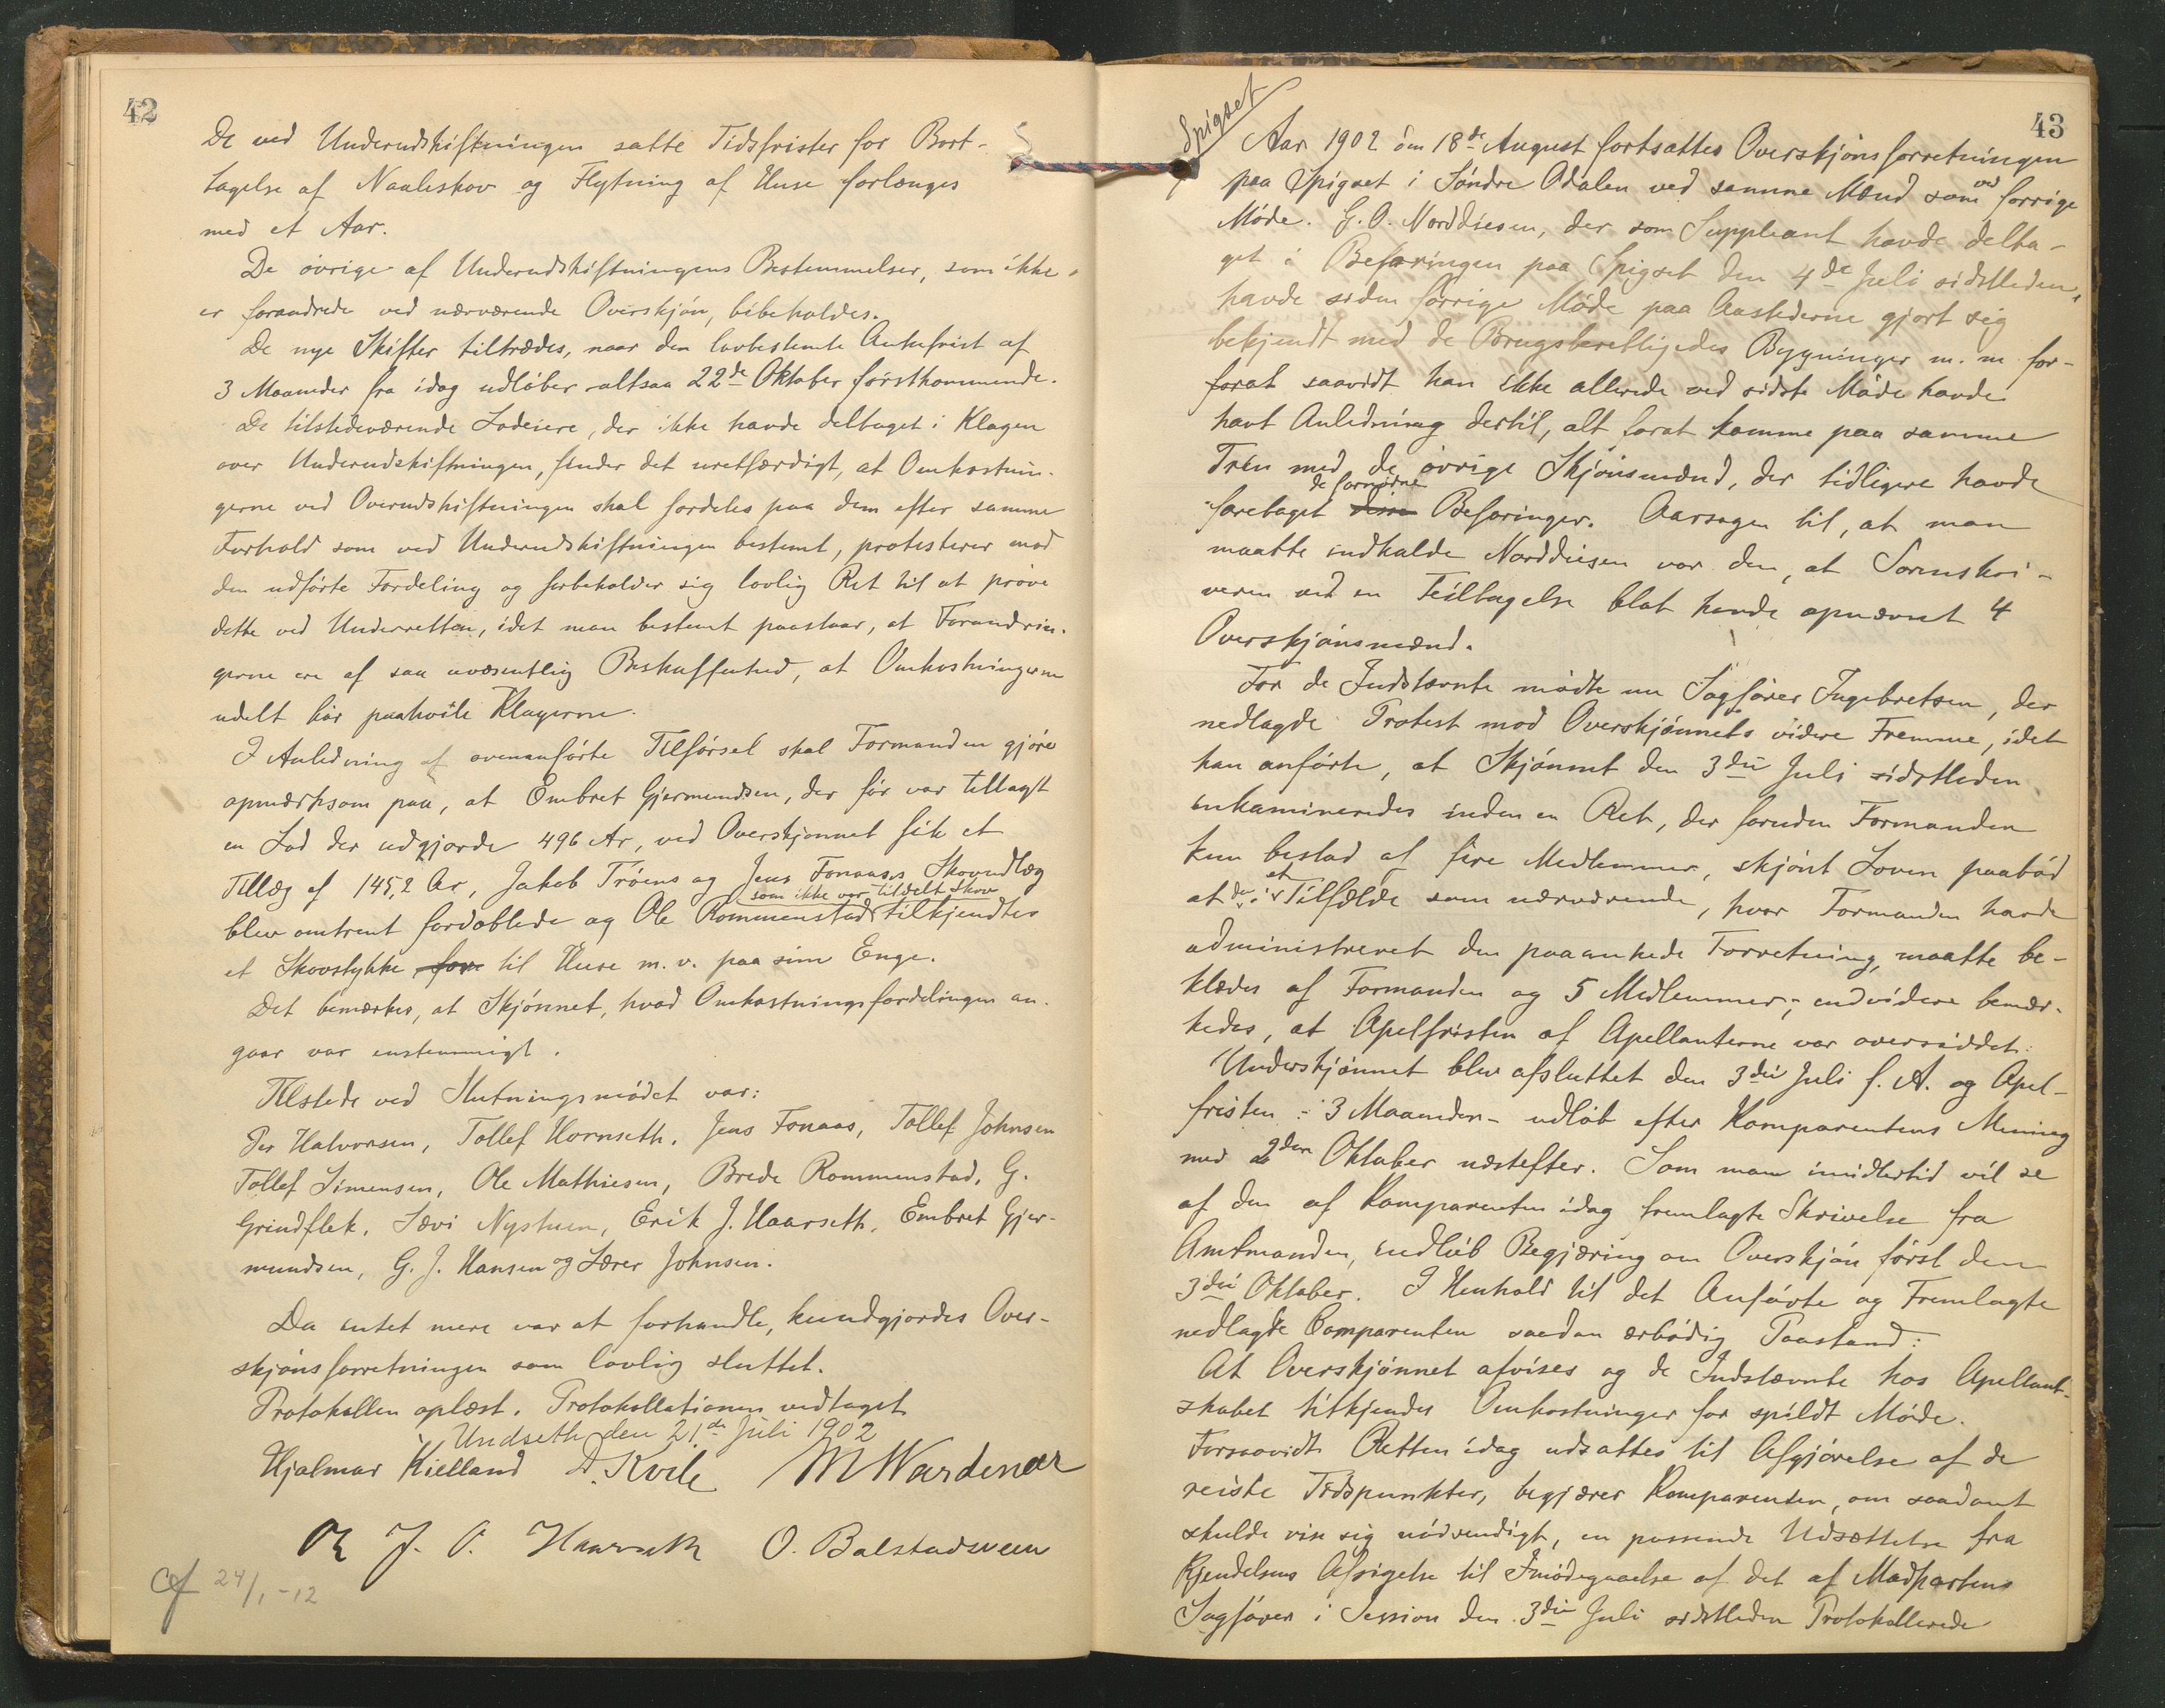 42
De ved Underudskiftningen satte Tidsfrister for Bort-
tagelse af Naaleskov og Flytning af Huse forlænges
med et Aar.
De øvrige af Underudskiftningens Bestemmelser, som ikke
er forandrede ved nærværende Overskjøn, bibeholdes.
De nye Skifter tiltrædes, naar den lovbestemte Ankefrist af
3 Maaneder fra idag udløber altsaa 22de Oktober førstkommende.
De tilstedeværende Lodeiere, der ikke havde deltaget i Klagen
over Underudskiftningen, finder det uretfærdigt, at Omkostnin-
gerne ved Overudskiftningen skal fordeles paa dem efter samme
Forhold som ved Underudskiftningen bestemt, protesterer mod
den udførte Fordeling og forbeholder sig lovlig Ret til at prøve
dette ved Underretten, idet man bestemt paastaar, at Forandrin-
gerne ere af saa uvæsentlig Beskaffenhed, at Omkostningerne
udelt bør paahvile Klagerne.
I Anledning af ovenanførte Tilførsel skal Formanden gjøre
opmærksom paa, at Embret Gjermundsen, der før var tillagt
en Lod der udgjorde 496 Ar, ved Overskjønnet fik et
Tillæg af 145,2 Ar, Jakob Trøens og Jens Fonaases Skovudlæg
blev omtrent fordoblede og Ole Rommenstad som ikke var tildelt Skov tilkjendtes
et Skovstykke for til Huse m.v. paa sin Enge.
Det bemærkes, at Skjønnet, hvad Omkostningsfordelingen an-
gaar var enstemmigt.
Tilstede ved Slutningsmødet var:
Per Halvorsen, Tollef Hornseth, Jens Fonaas, Tollef Johnsen
Tollef Simensen, Ole Mathiesen, Brede Rommenstad, G.
Grindflek, Sævi Nystuen, Erik J. Haarseth, Embret Gjer-
mundsen, G. J. Hansen og Lærer Johnsen.
Da intet mere var at forhandle, kundgjordes Over-
skjønsforretningen som lovlig sluttet.
Protokollen oplæst. Protokollationen vedtaget
Undseth den 21de Juli 1902
Hjalmar Kielland A. Kvile M Wardenær
J. O. Haarseth O. Balstadsveen
24/1 -12
Spigset
43
Aar 1902 den 18de August fortsattes Overskjønsforretningen
paa Spigset i Søndre Odalen ved samme Mænd som ved forrige
Møde. G. O. Norddiesen, der som Suppleant havde delta-
get i Befaringen paa Spigset den 4de Juli sidstleden,
havde siden forrige Møde paa Aastederne gjort sig
bekjendt med de Brugsberettigedes Bygninger m. m for-
forat saavidt han ikke allerede ved sidste Møde havde
havt Anledning dertil, alt forat komme paa samme
Trin med de øvrige Skjønsmænd, der tidligere havde
foretaget de fornødne Befaringer. Aarsagen til, at man
maatte indkalde Norddiesen var den, at Sorenskri-
veren ved en Feiltagelse blot havde opnævnt 4
Overskjønsmænd.
For de Indstævnte mødte nu Sagfører Ingebretsen, der
nedlagde Protest mod Overskjønnets videre Fremme, idet
han anførte, at Skjønnet den 3die Juli sidstleden
enkamineredes inden en Ret, der foruden Formanden
kun bestod af fire Medlemmer, skjønt Loven paabød
at der i et Tilfælde som nærværende, hvor Formanden havde
administreret den paaankede Forretning, maatte be-
klædes af Formanden og 5 Medlemmer; endvidere bemær-
kedes, at Apelfristen af Apellanterne var oversiddet:
Underskjønnet blev afsluttet den 3die Juli f. A. og Apel-
fristen - 3 Maaneder - udløb efter Komparentens Mening
med 2den Oktober næstefter. Som man imidlertid vil se
af den af Komparenten idag fremlagte Skrivelse fra
Amtmanden, indløb Begjæring om Overskjøn først den
3die Oktober. I Henhold til det Anførte og Fremlagte
nedlagde Comparenten saadan ærbødig Paastand:
At Overskjønnet afvises og de Indstævnte hos Apellant-
skabet tilkjendes Omkostninger for spildt Møde.
Forsaavidt Retten idag udsattes til Afgjørelse af de
reiste Tvistpunkter, begjærer Komparenten, om saadant
skulde vise sig nødvendigt, en passende Udsættelse fra
Kjendelsens Afsigelse til Imødegaaelse af det af Modpartens
Sagfører i Session den 3die Juli sidstleden Protokollerede